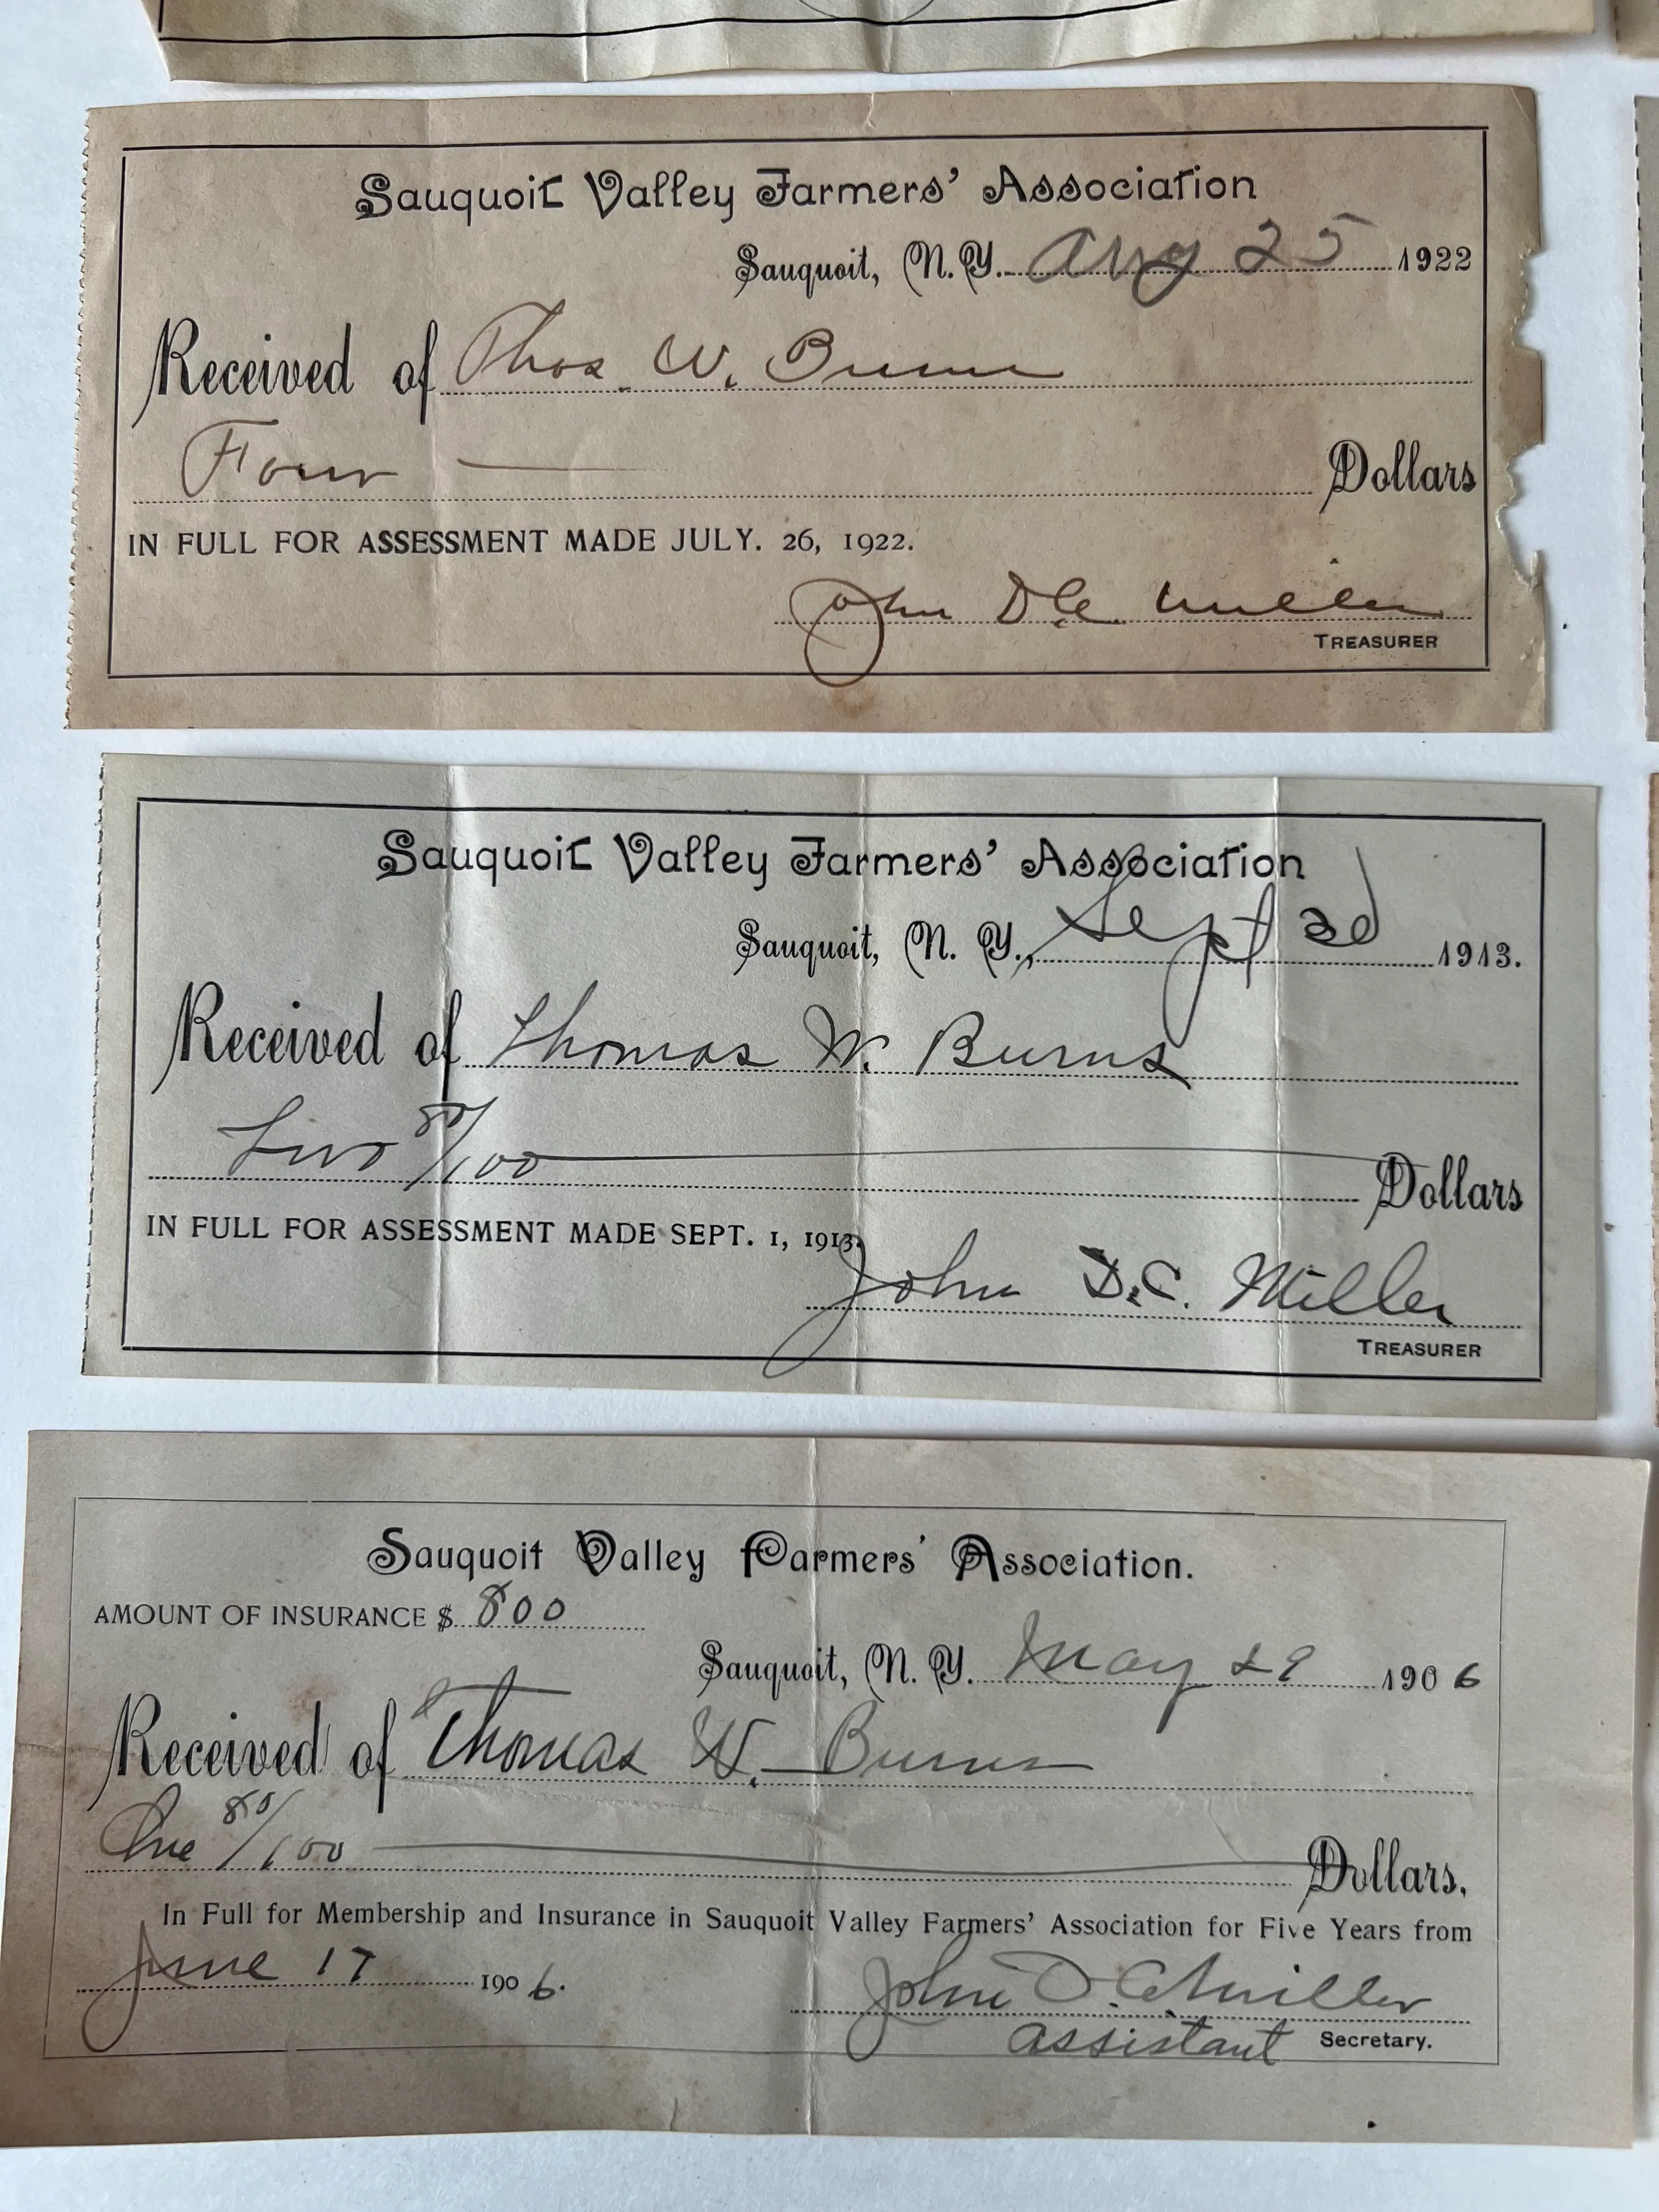 Sauquoit Valley Farmers' Association
Sauquoit, N.Y. Aug 25 1922
Received of Thos. W. Burns
Four Dollars
IN FULL FOR ASSESSMENT MADE JULY. 26, 1922.
John D.C. Miller
TREASURER
Sauquoit Valley Farmers' Association
Sauquoit, N. Y., Sept 3d 1913.
Received of Thomas W. Burns
Two 80/100 Dollars
IN FULL FOR ASSESSMENT MADE SEPT. 1, 1913.
John D.C. Miller
TREASURER
Sauquoit Valley Farmers' Association.
AMOUNT OF INSURANCE $ 800
Sauquoit, N. Y. May 29 1906
Received of Thomas W. Burns
One 80/100 Dollars.
In Full for Membership and Insurance in Sauquoit Valley Farmers' Association for Five Years from
June 17 1906.
John D.C. Miller
assistant Secretary.